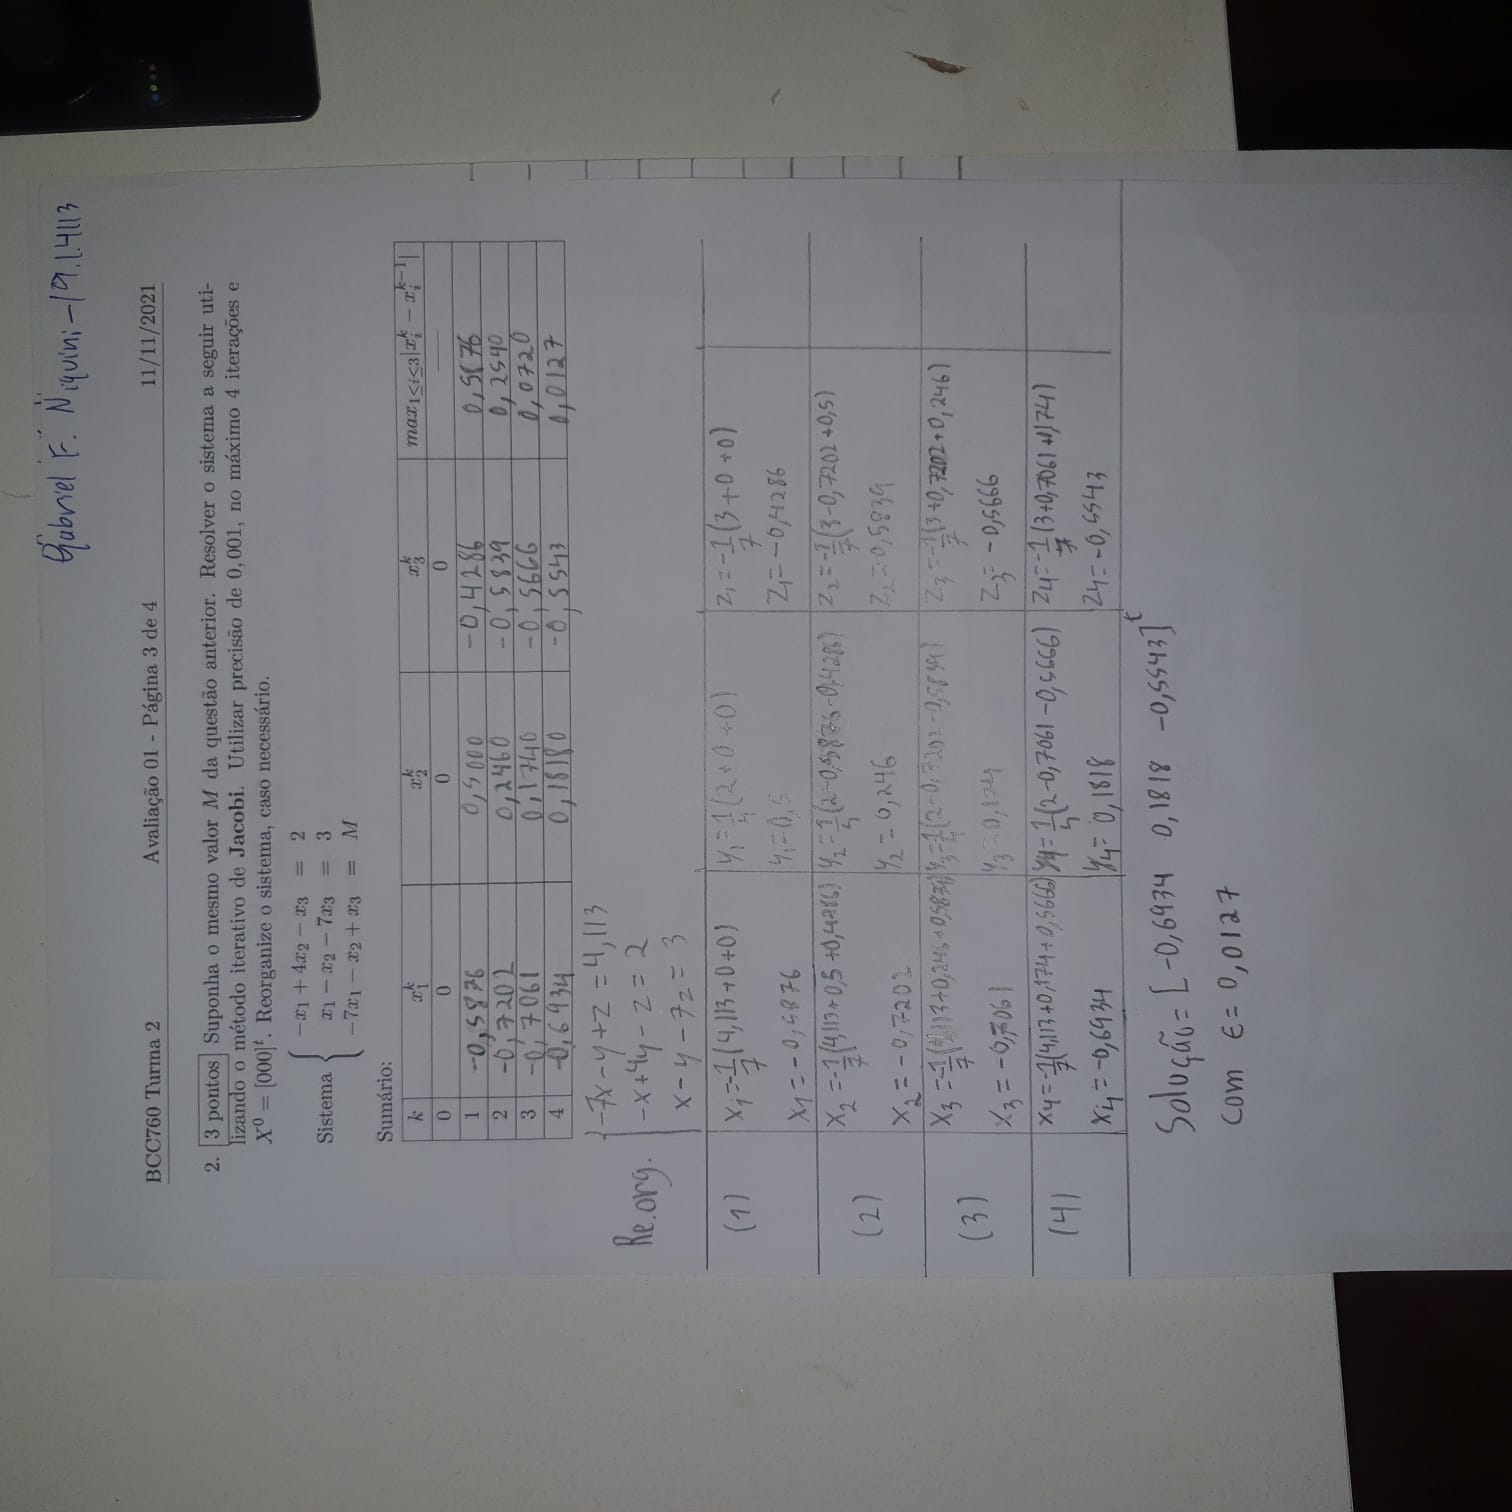 Gabriel F. Niquini - 19.1.4113
BCC760 Turma 2 Avaliação 01 - Página 3 de 4 11/11/2021
2. 3 pontos Suponha o mesmo valor M da questão anterior. Resolver o sistema a seguir uti-
lizando o método iterativo de Jacobi. Utilizar precisão de 0,001, no máximo 4 iterações e
X⁰ = [000]ᵗ. Reorganize o sistema, caso necessário.
−x₁ + 4x₂ − x₃ = 2
Sistema { x₁ − x₂ − 7x₃ = 3
−7x₁ − x₂ + x₃ = M
Sumário:
k x₁ᵏ x₂ᵏ x₃ᵏ max₁≤ᵢ≤₃|xᵢᵏ − xᵢᵏ⁻¹|
0 0 0 0 —
1 -0,5876 0,5000 -0,4286 0,5876
2 -0,7202 0,2460 -0,5839 0,2540
3 -0,7061 0,1740 -0,5666 0,0720
4 -0,6934 0,18180 -0,5543 0,0127
-7x - y + z = 4,113
Re.org. { -x + 4y - z = 2
x - y - 7z = 3
(1) x₁ = -1/7 (4,113 + 0 + 0) y₁ = 1/4 (2 + 0 + 0) z₁ = -1/7 (3 + 0 + 0)
x₁ = -0,5876 y₁ = 0,5 z₁ = -0,4286
(2) x₂ = -1/7 (4,113 + 0,5 + 0,4286) y₂ = 1/4 (2 - 0,5876 - 0,4286) z₂ = -1/7 (3 - 0,7202 + 0,5)
x₂ = -0,7202 y₂ = 0,246 z₂ = -0,5839
(3) x₃ = -1/7 (4,113 + 0,246 + 0,5839) y₃ = 1/4 (2 - 0,7202 - 0,5839) z₃ = -1/7 (3 + 0,7202 + 0,246)
x₃ = -0,7061 y₃ = 0,174 z₃ = -0,5666
(4) x₄ = -1/7 (4,113 + 0,174 + 0,5666) y₄ = 1/4 (2 - 0,7061 - 0,5666) z₄ = -1/7 (3 + 0,7061 + 0,174)
x₄ = -0,6934 y₄ = 0,1818 z₄ = -0,5543
Solução = [-0,6934 0,1818 -0,5543]ᵗ
com ε = 0,0127